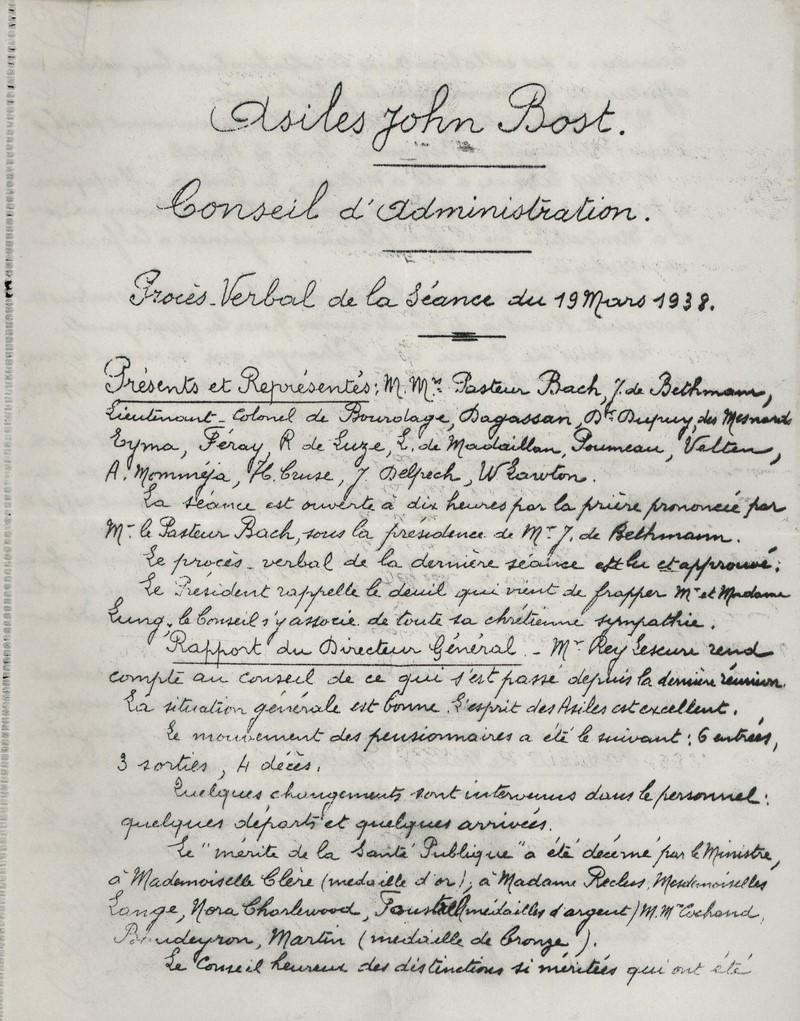 Asiles John Bost.
Conseil d'Administration.
Procès-Verbal de la Séance du 19 Mars 1938.
Présents et Représentés: M. Mrs Pasteur Bach, J. de Bethmann,
Lieutenant-Colonel de Bourdage, Dagassan, Dr Dupuy, des Mesnards
Eyma, Féray, R de Luze, L. de Madaillan, Poumeau, Velten,
A. Momméja, H. Cruse, J. Delpech, W Lawton.
La séance est ouverte à dix heures par la prière prononcée par
Mr le Pasteur Bach, sous la présidence de Mr J. de Bethmann.
Le procès-verbal de la dernière séance est lu et approuvé.
Le Président rappelle le deuil qui vient de frapper Mr et Madame
Lung, le Conseil s'y associe de toute sa chrétienne sympathie.
Rapport du Directeur Général - Mr Rey Lescure rend
compte au conseil de ce qui s'est passé depuis la dernière réunion.
La situation générale est bonne. L'esprit des Asiles est excellent.
Le mouvement des pensionnaires a été le suivant: 6 entrées,
3 sorties, 4 décès.
Quelques changements sont intervenus dans le personnel:
quelques départs et quelques arrivées.
Le "mérite de la Santé Publique" a été décerné par le Ministre,
à Mademoiselle Clère (médaille d'or), à Madame Reclus, Mesdemoiselles
Lange, Nora Charlewood, (médailles d'argent) M. Mrs Cochand,
Martin (médaille de bronze).
Le Conseil heureux des distinctions si méritées qui ont été